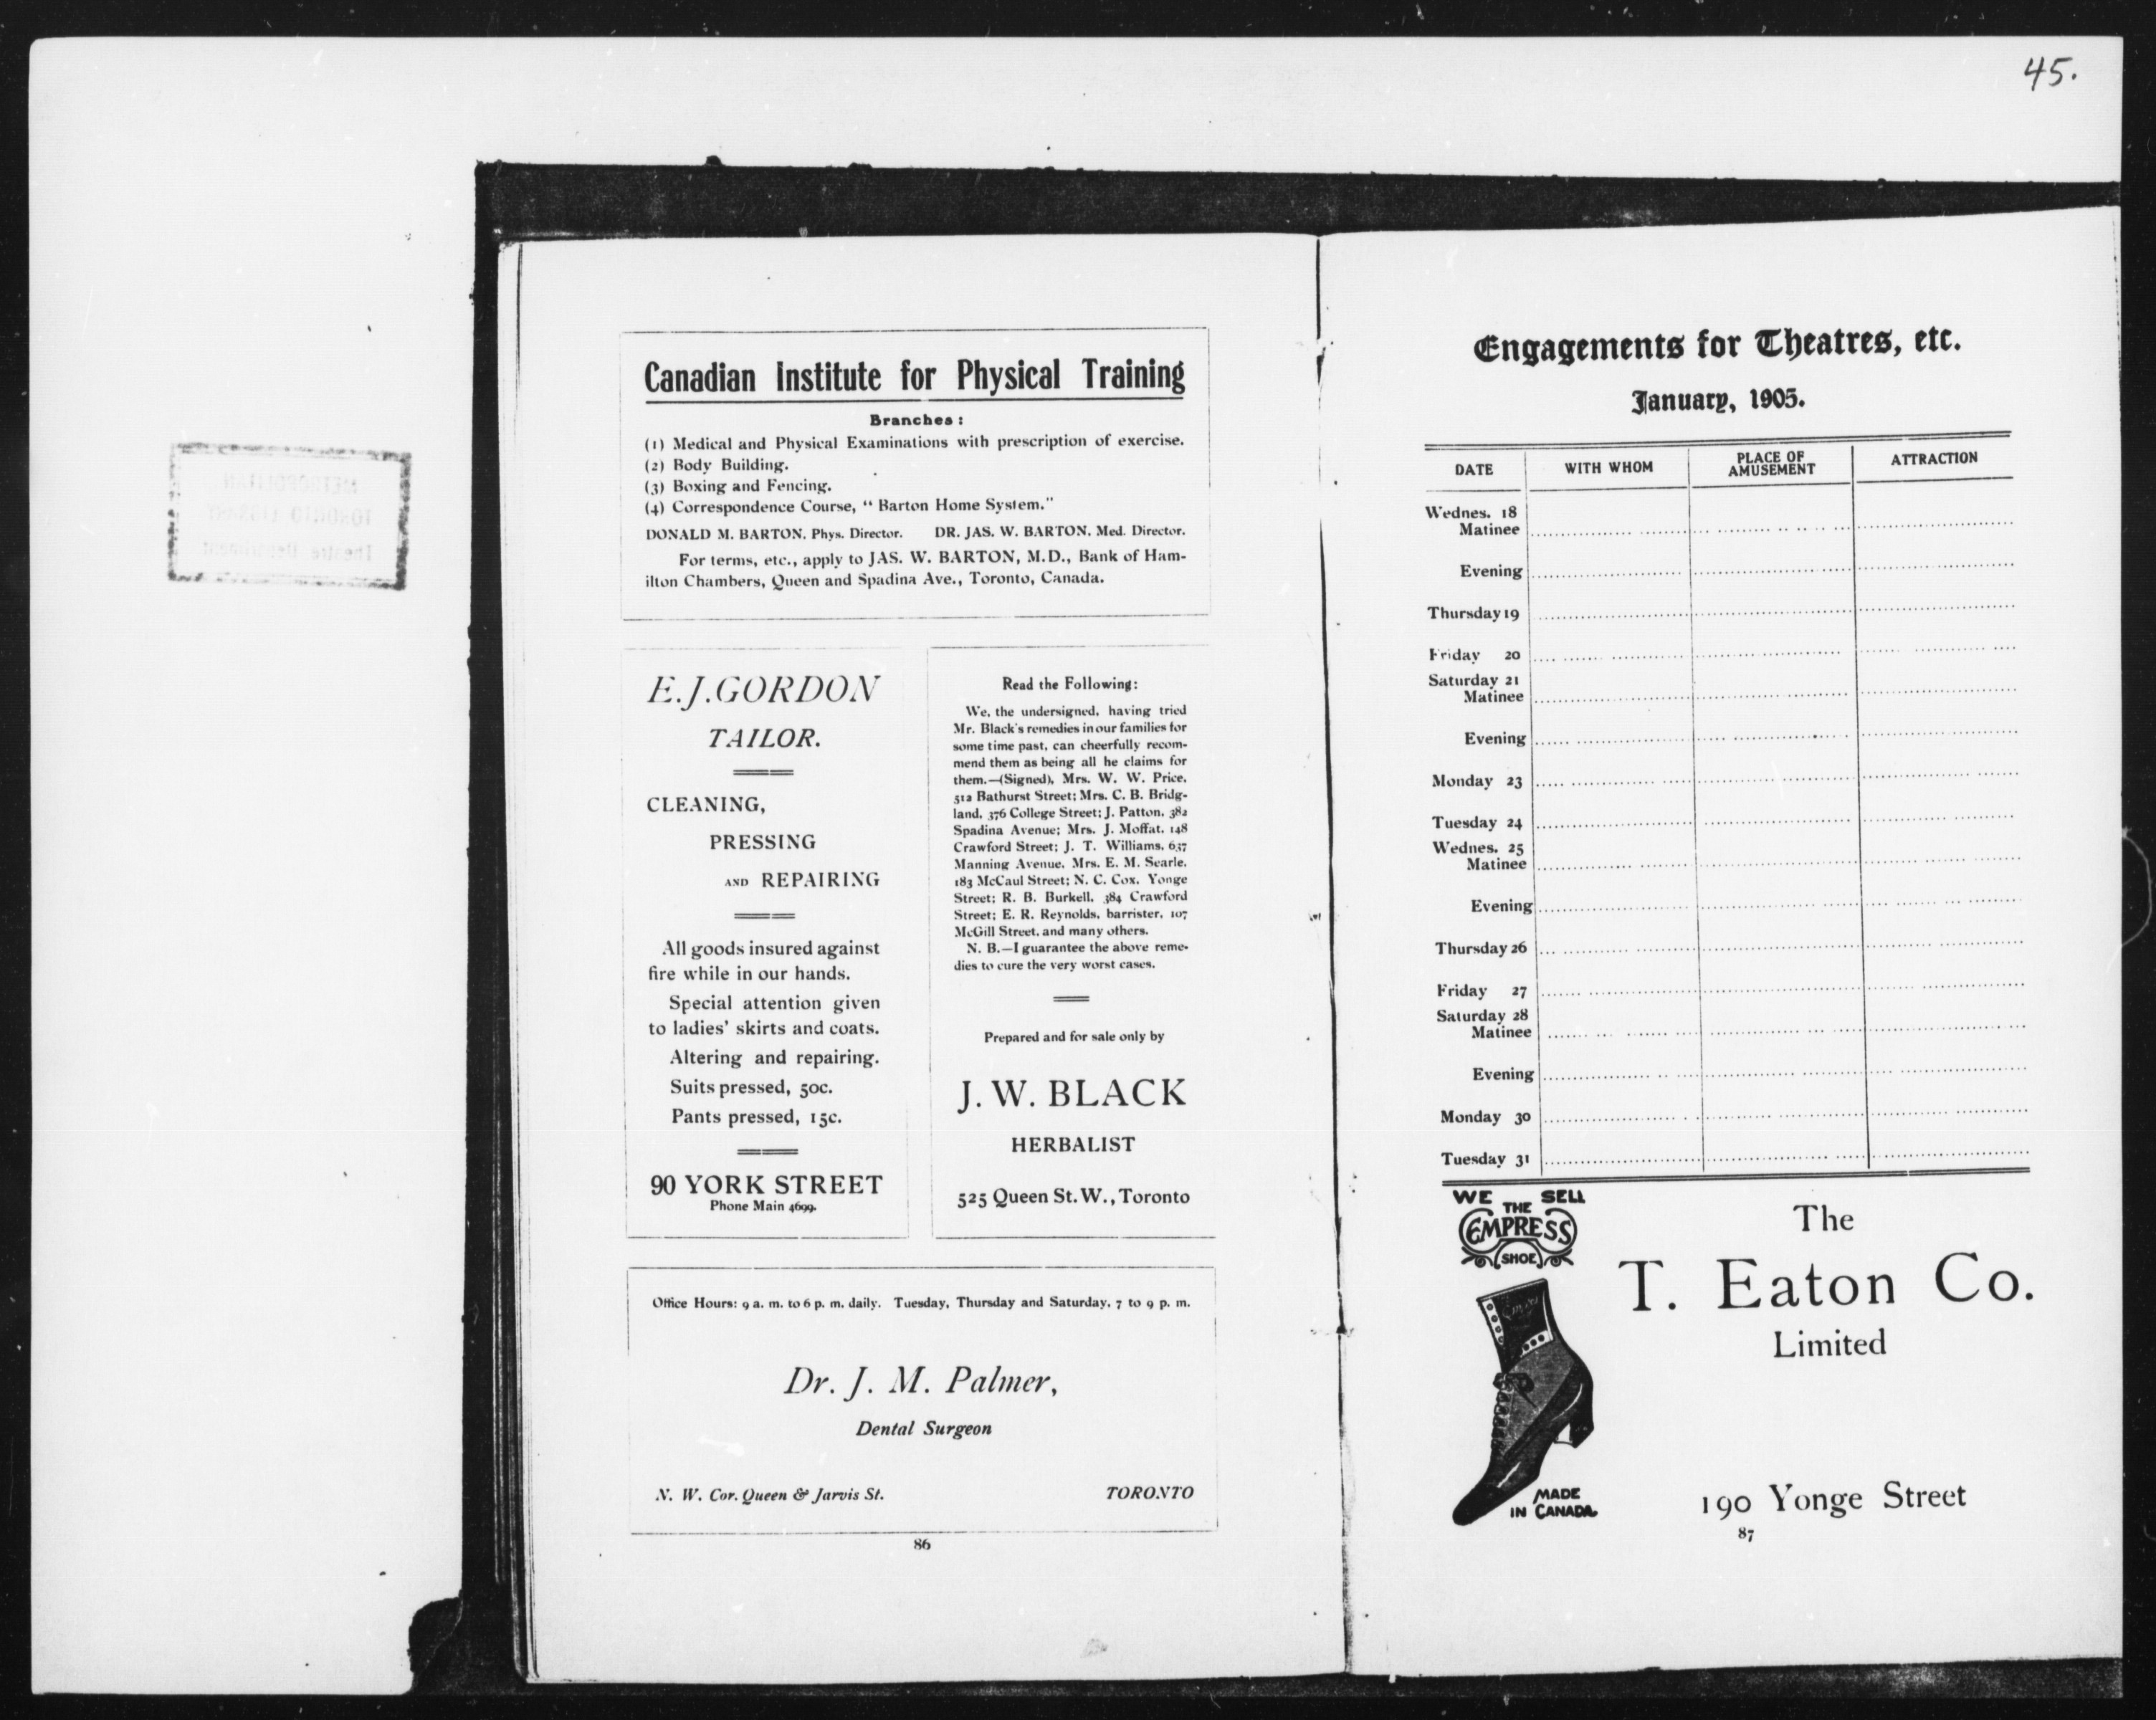 45.
METROPOLITAN
TORONTO LIBRARY
Theatre Department
Canadian Institute for Physical Training
Branches:
(1) Medical and Physical Examinations with prescription of exercise.
(2) Body Building.
(3) Boxing and Fencing.
(4) Correspondence Course, "Barton Home System."
DONALD M. BARTON. Phys. Director. DR. JAS. W. BARTON. Med. Director.
For terms, etc., apply to JAS. W. BARTON, M.D., Bank of Ham-
ilton Chambers, Queen and Spadina Ave., Toronto, Canada.
E.J.GORDON
TAILOR.
CLEANING,
PRESSING
AND REPAIRING
All goods insured against
fire while in our hands.
Special attention given
to ladies' skirts and coats.
Altering and repairing.
Suits pressed, 50c.
Pants pressed, 15c.
90 YORK STREET
Phone Main 4699.
Read the Following:
We, the undersigned, having tried
Mr. Black's remedies in our families for
some time past, can cheerfully recom-
mend them as being all he claims for
them.—(Signed), Mrs. W. W. Price,
512 Bathurst Street; Mrs. C. B. Bridg-
land, 376 College Street; J. Patton, 382
Spadina Avenue; Mrs. J. Moffat, 148
Crawford Street; J. T. Williams, 637
Manning Avenue, Mrs. E. M. Searle,
183 McCaul Street; N. C. Cox, Yonge
Street; R. B. Burkell, 384 Crawford
Street; E. R. Reynolds, barrister, 107
McGill Street, and many others.
N. B.—I guarantee the above reme-
dies to cure the very worst cases.
Prepared and for sale only by
J. W. BLACK
HERBALIST
525 Queen St. W., Toronto
Office Hours: 9 a. m. to 6 p. m. daily. Tuesday, Thursday and Saturday, 7 to 9 p. m.
Dr. J. M. Palmer,
Dental Surgeon
N. W. Cor. Queen & Jarvis St. TORONTO
86
Engagements for Theatres, etc.
January, 1905.
DATE WITH WHOM PLACE OF AMUSEMENT ATTRACTION
Wednes. 18
Matinee
Evening
Thursday 19
Friday 20
Saturday 21
Matinee
Evening
Monday 23
Tuesday 24
Wednes. 25
Matinee
Evening
Thursday 26
Friday 27
Saturday 28
Matinee
Evening
Monday 30
Tuesday 31
WE SELL
THE
EMPRESS
SHOE
MADE
IN CANADA
The
T. Eaton Co.
Limited
190 Yonge Street
87